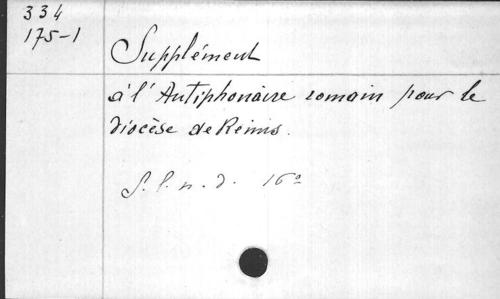 334
175-1
Supplément
à l'Antiphonaire romain pour le
diocèse de Reims.
S. l. n. d. 16º